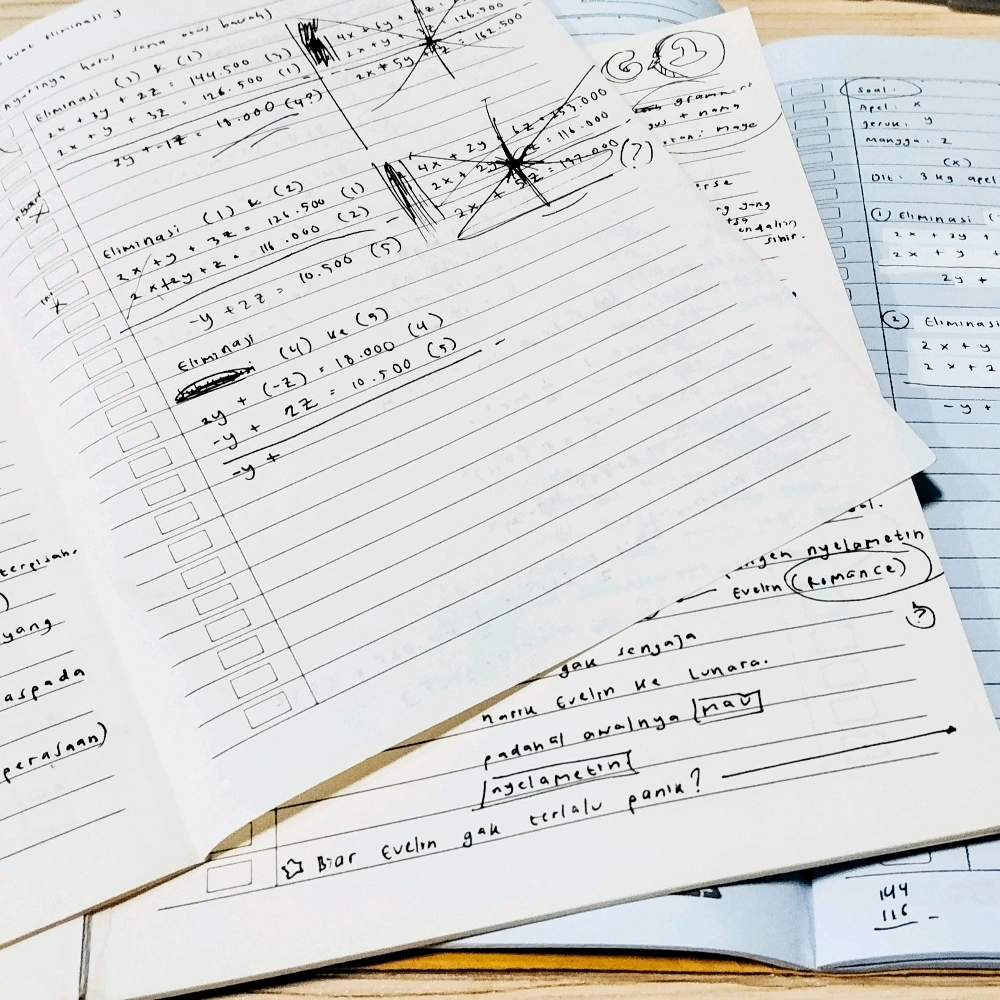 buat eliminasi y
nyaringnya harus sama atas bawah)
Eliminasi (3) & (1)
2x + 3y + 2z = 144.500 (3)
2x + y + 3z = 126.500 (1) -
2y + -1z = 18.000 (4?)
126.500
2x + y + z
2x + 5y + z = 162.500
Eliminasi (1) & (2)
2x + y + 3z = 126.500 (1)
2x + 2y + z = 116.000 (2) -
-y + 2z = 10.500 (5)
4x + 2y + 6z = 253.000
2x + 2y + z = 116.000
2x + 5z = 137.000 (?)
Eliminasi
(4) ke (5)
2y + (-z) = 18.000 (4)
-y + 2z = 10.500 (5) -
-y +
terpisah.
yang
aspada
perasaan)
+ nama
sihir.
nyelametin
Evelin (Romance)
?
gak sengaja
narik Evelin ke Lunara.
padahal awalnya mau
nyelametin
☆ Biar Evelin gak terlalu panik?
Soal:
Apel: x
Jeruk: y
Mangga: z
(x)
Dit: 3 kg apel
① Eliminasi (
2x + 3y +
2x + y +
2y +
② Eliminasi
2x + y
2x + 2
-y +
144
116 -